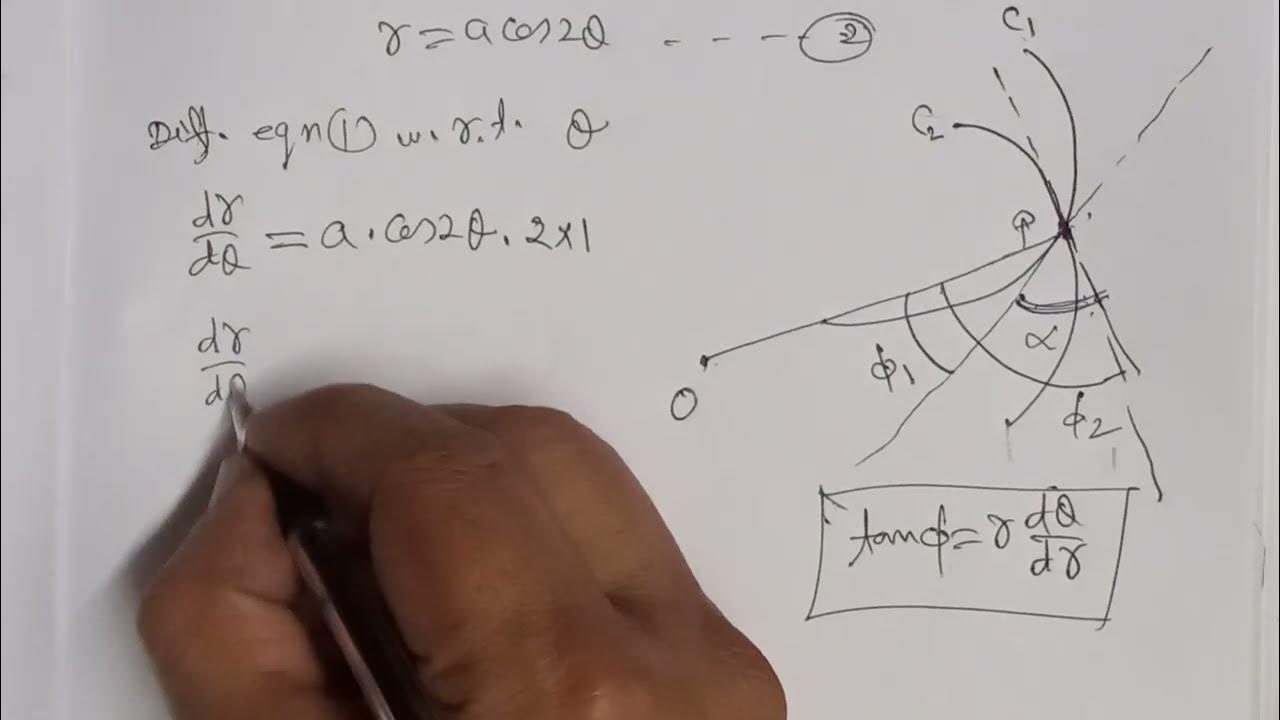 r = a cos2θ - - - - ②
Diff. eqn(1) w.r.t. θ
dr/dθ = a . cos2θ . 2×1
dr/dθ
C1
C2
P
O
ϕ1
α
ϕ2
tanϕ = r dθ/dr